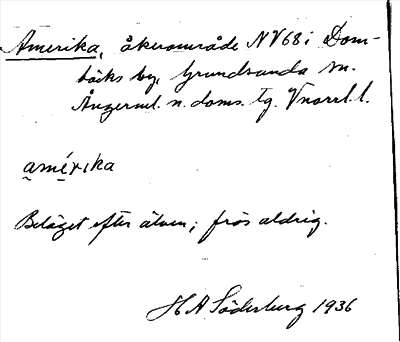 Amerika, åkerområde NV68 i Dom-
bäcks by, Grundsunda sn.
Ångerml. n. doms. tg. Vnorrl. l.
amérika
Beläget efter älven; frös aldrig.
H A Söderburg 1936